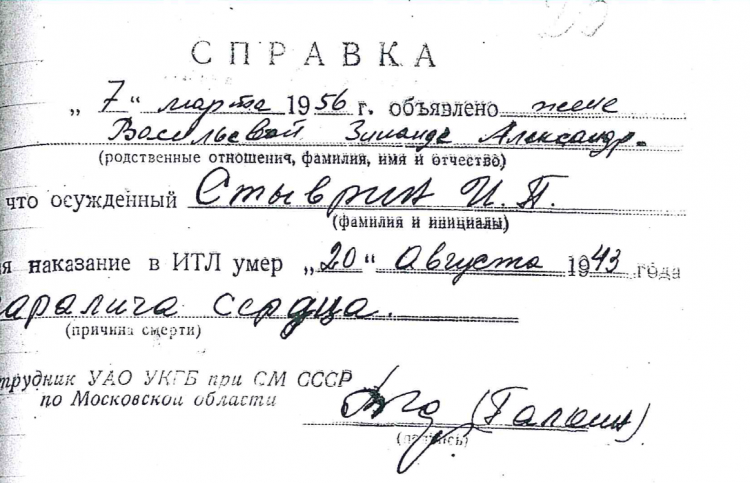 СПРАВКА
„7“ марта 1956 г. объявлено жене
Васильевой Зинаиде Александр.
(родственные отношения, фамилия, имя и отчество)
что осужденный Стыврин И. П.
(фамилия и инициалы)
я наказание в ИТЛ умер „20“ Августа 1943 года
аралича сердца.
(причина смерти)
трудник УАО УКГБ при СМ СССР
по Московской области
(Галкин)
(подпись)